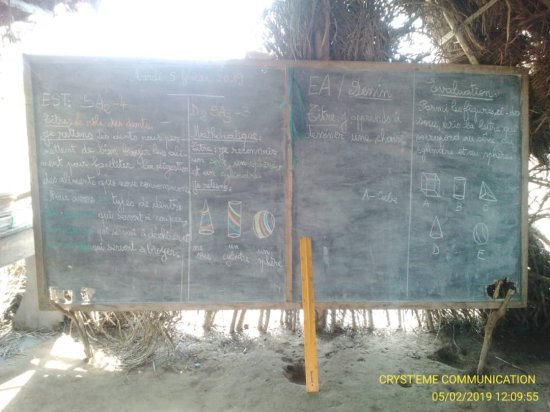 Mardi 5 février 2019
EST: SA2-4
Titre: Le rôle des dents
Je retiens: les dents nous per-
mettent de bien
ment pour faciliter la digestion
des aliments que nous consommons
Nous avons types de dents:
qui servent à couper
qui servent à déchirer et
qui servent à broyer.
SA2-3
Mathématique:
Titre: Je reconnais
un cône, une sphère
et un cylindre
Je retiens:
un un un
cône cylindre sphère
EA / Dessin
Titre: J'apprends à
dessiner une chaise
A-Cube
Evaluation
Parmi les figures ci-des-
sous, écris la lettre qui
correspond au cône
cylindre et une sphère
A B C
D E
CRYST'EME COMMUNICATION
05/02/2019 12:09:55